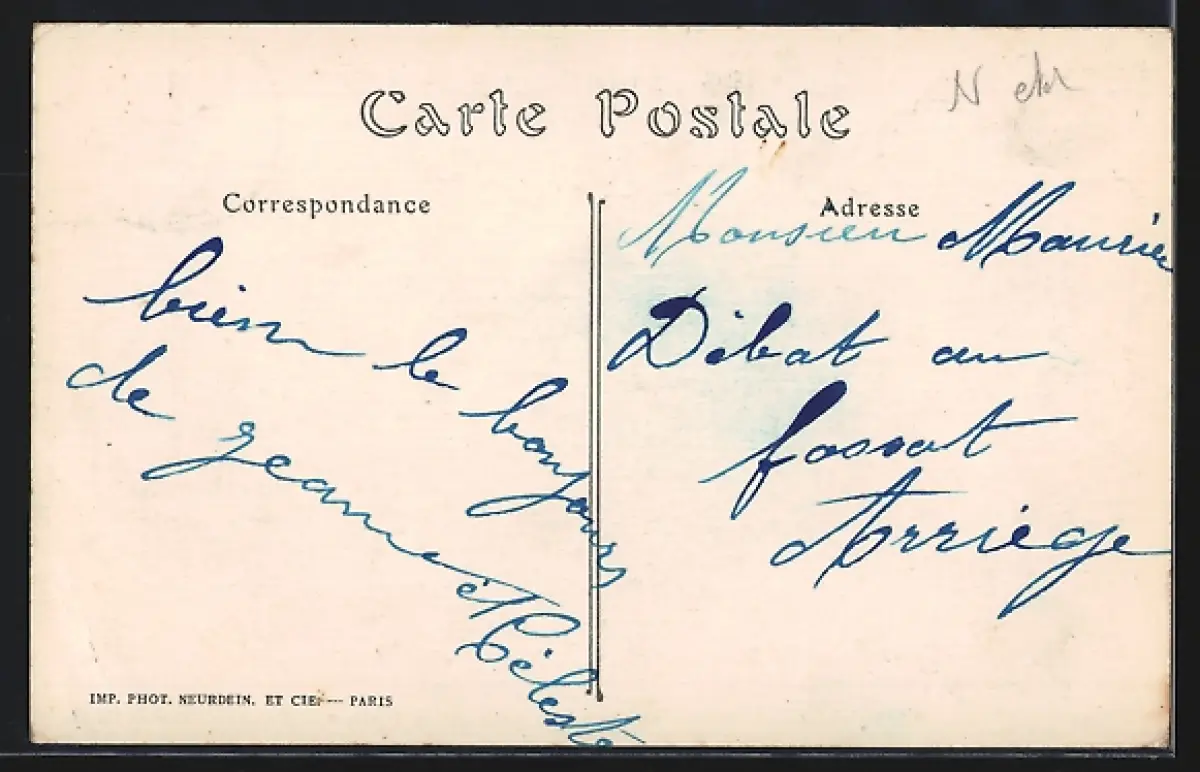 Carte Postale
Correspondance
bien le bonjour
de jeanne et Céleste
IMP. PHOT. NEURDEIN. ET CIE. — PARIS
Adresse
Monsieur
Débat au
fossat
Arriège